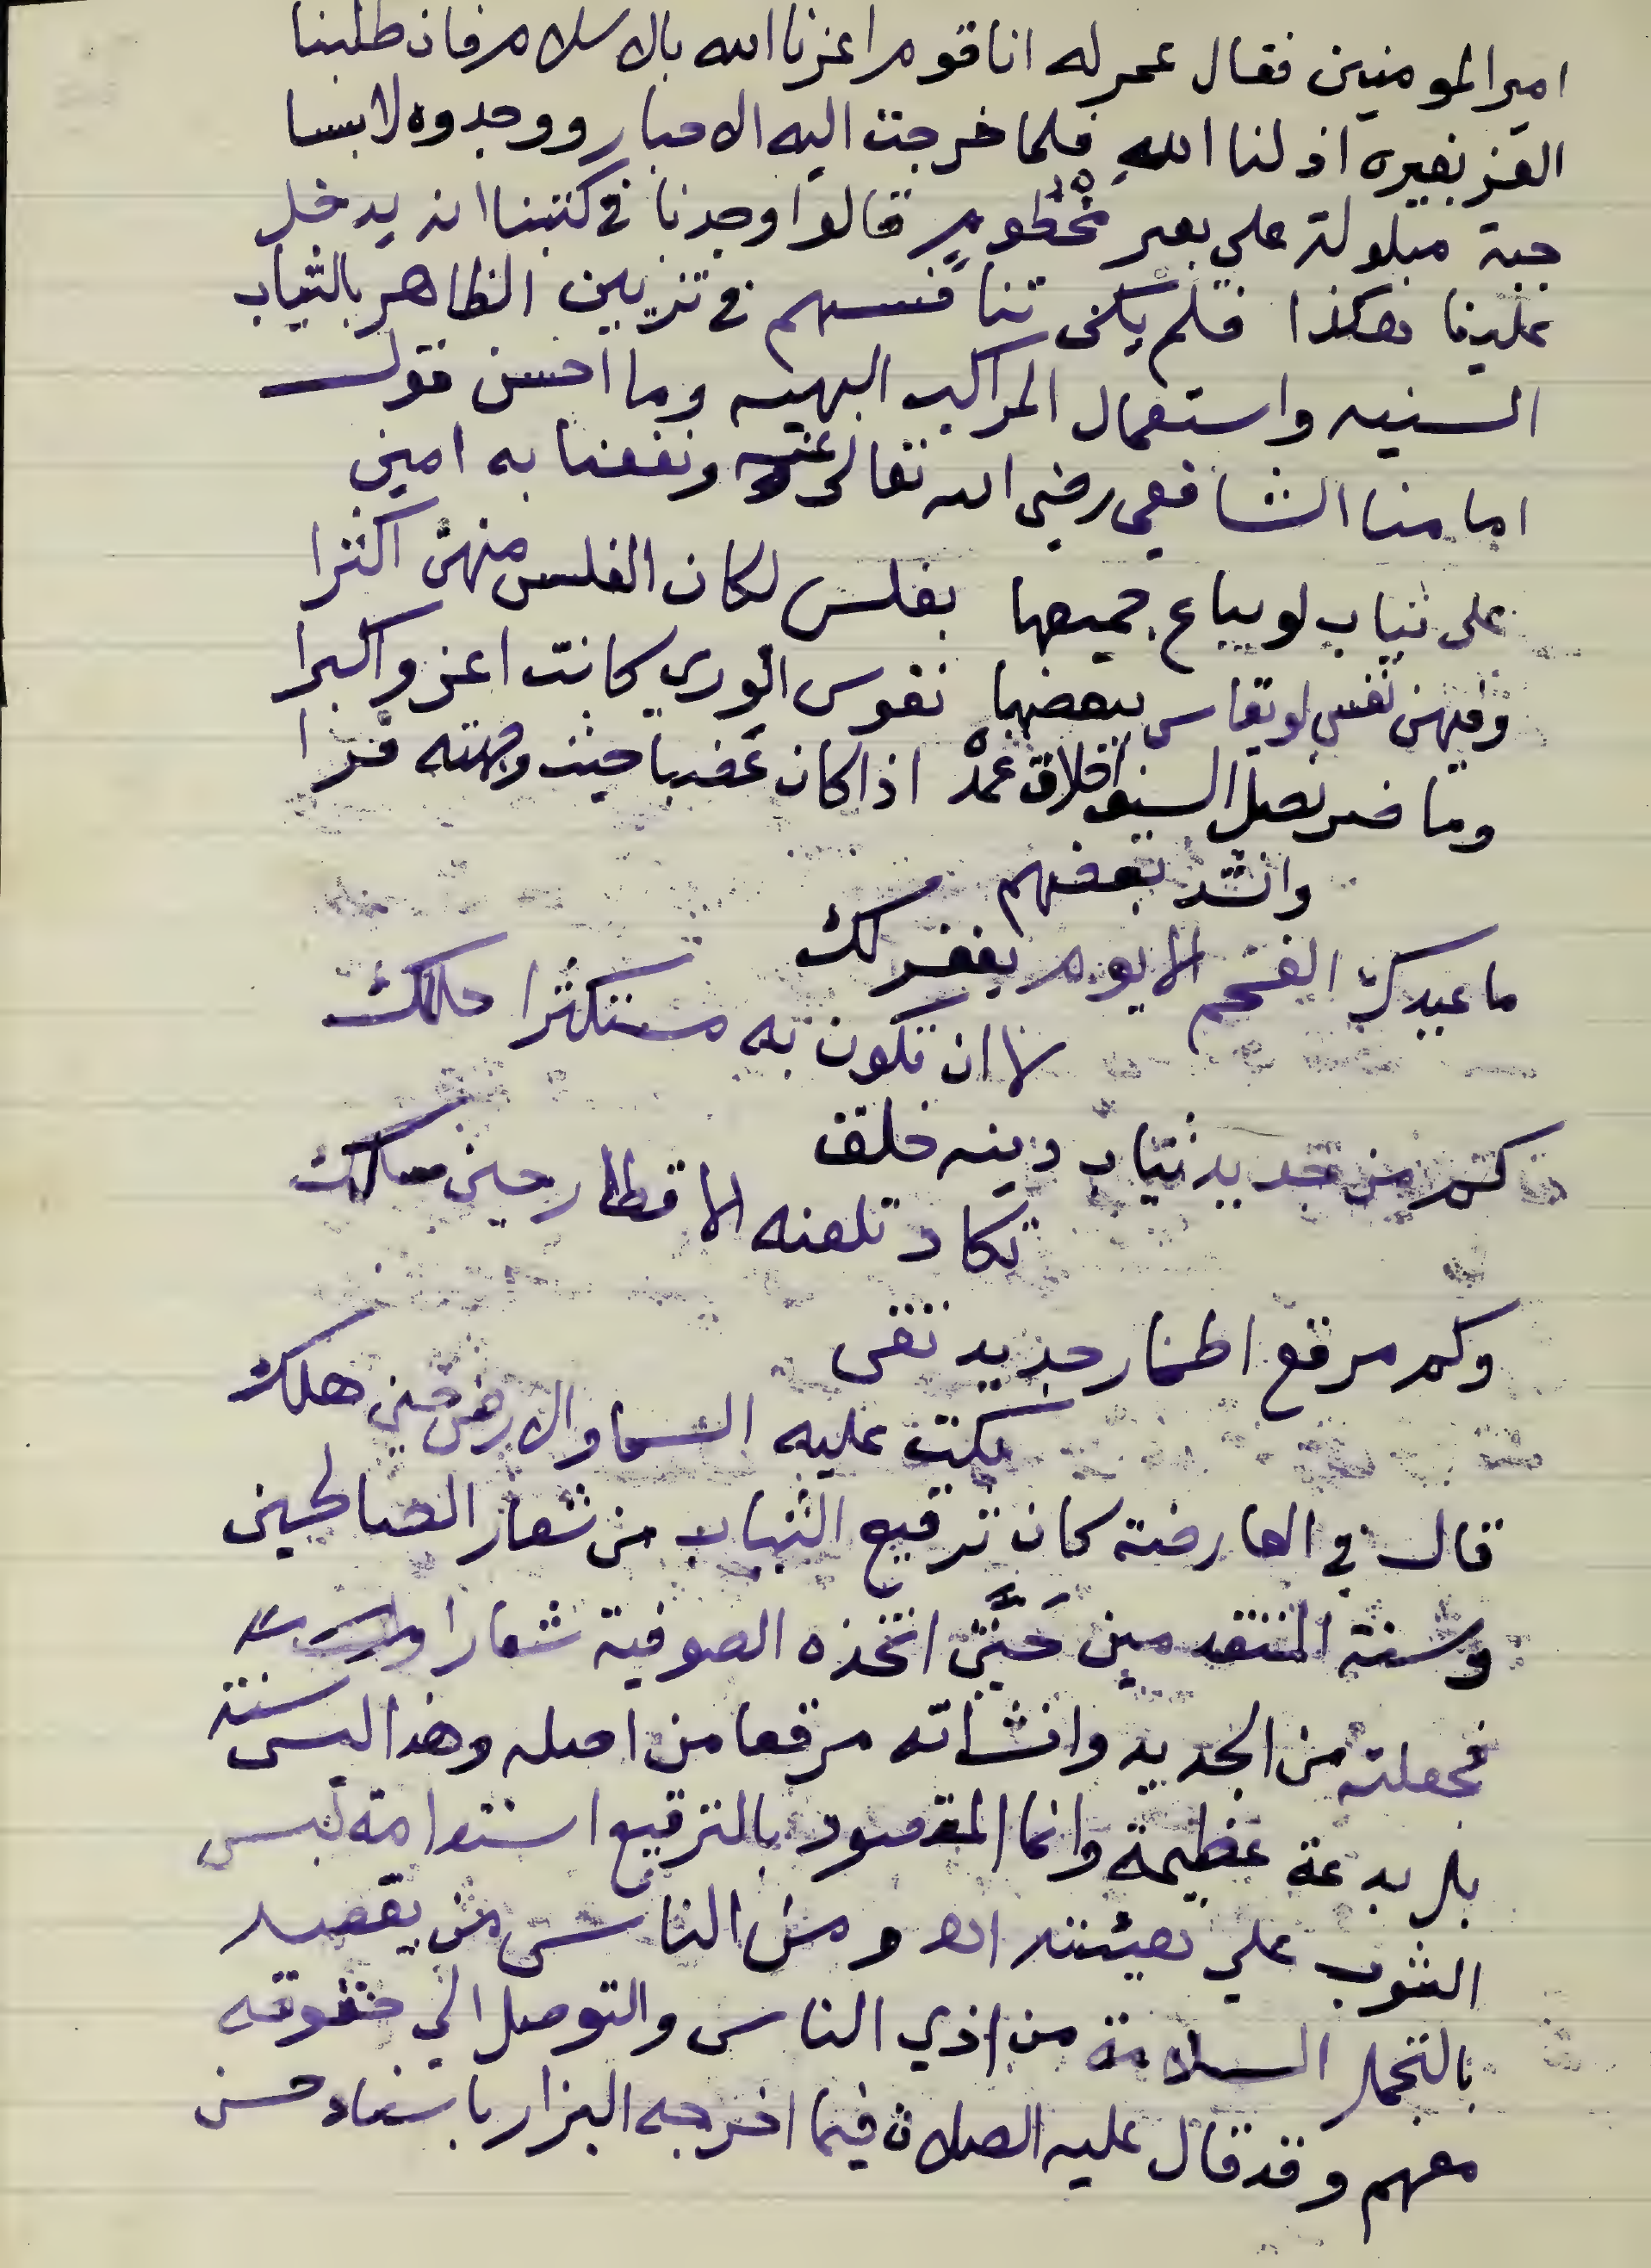 امير المومنين فقال عمر له انا قوم اعزنا الله بالاسلام فان طلبنا
العز بغيره اذلنا الله فلما خرجت اليه الاحبار ووجدوه لابسا
جبة مبلولة على بعير مخطوم قالوا وجدنا في كتبنا انه يدخل
علينا هكذا فلم يكن تنافسهم في تزيين الظاهر بالثياب
السنيه واستعمال المراكب البهيه وما احسن قول
امامنا الشافعي رضي الله تعالى عنه ونفعنا به امين
على ثياب لو يباع جميعها بفلس لكان الفلس منهن اكثرا
وفيهن نفس لو تقاس ببعضها نفوس الورى كانت اعز واكبرا
وما ضر نصل السيف اخلاق غمده اذا كان عضبا حيث وجهته فرا
وانشد بعضهم
ما عيدك الفخم الا يوم يغفر لك
لا ان تكون به مستكثرا حللك
كم من جديد ثياب دينه خلق
تكاد تلعنه الاقطار حين سلك
وكم مرقع اطمار جديد تقى
بكت عليه السما والارض حين هلك
قال في العارضة كان ترقيع الثياب من شعار الصالحين
وسنة المتقدمين حتى اتخذه الصوفية شعارا
فجعلته من الجديد وانشاته مرقعا من اصله وهذا ليس سنة
بل بدعة عظيمة وانما المقصود بالترقيع استدامة لبس
الثوب على هيئته اه ومن الناس من يقصد
بالتجمل السلامة من اذي الناس والتوصل الي حقوقه
معهم وقد قال عليه الصلاة فيما اخرجه البزار باسناد حسن